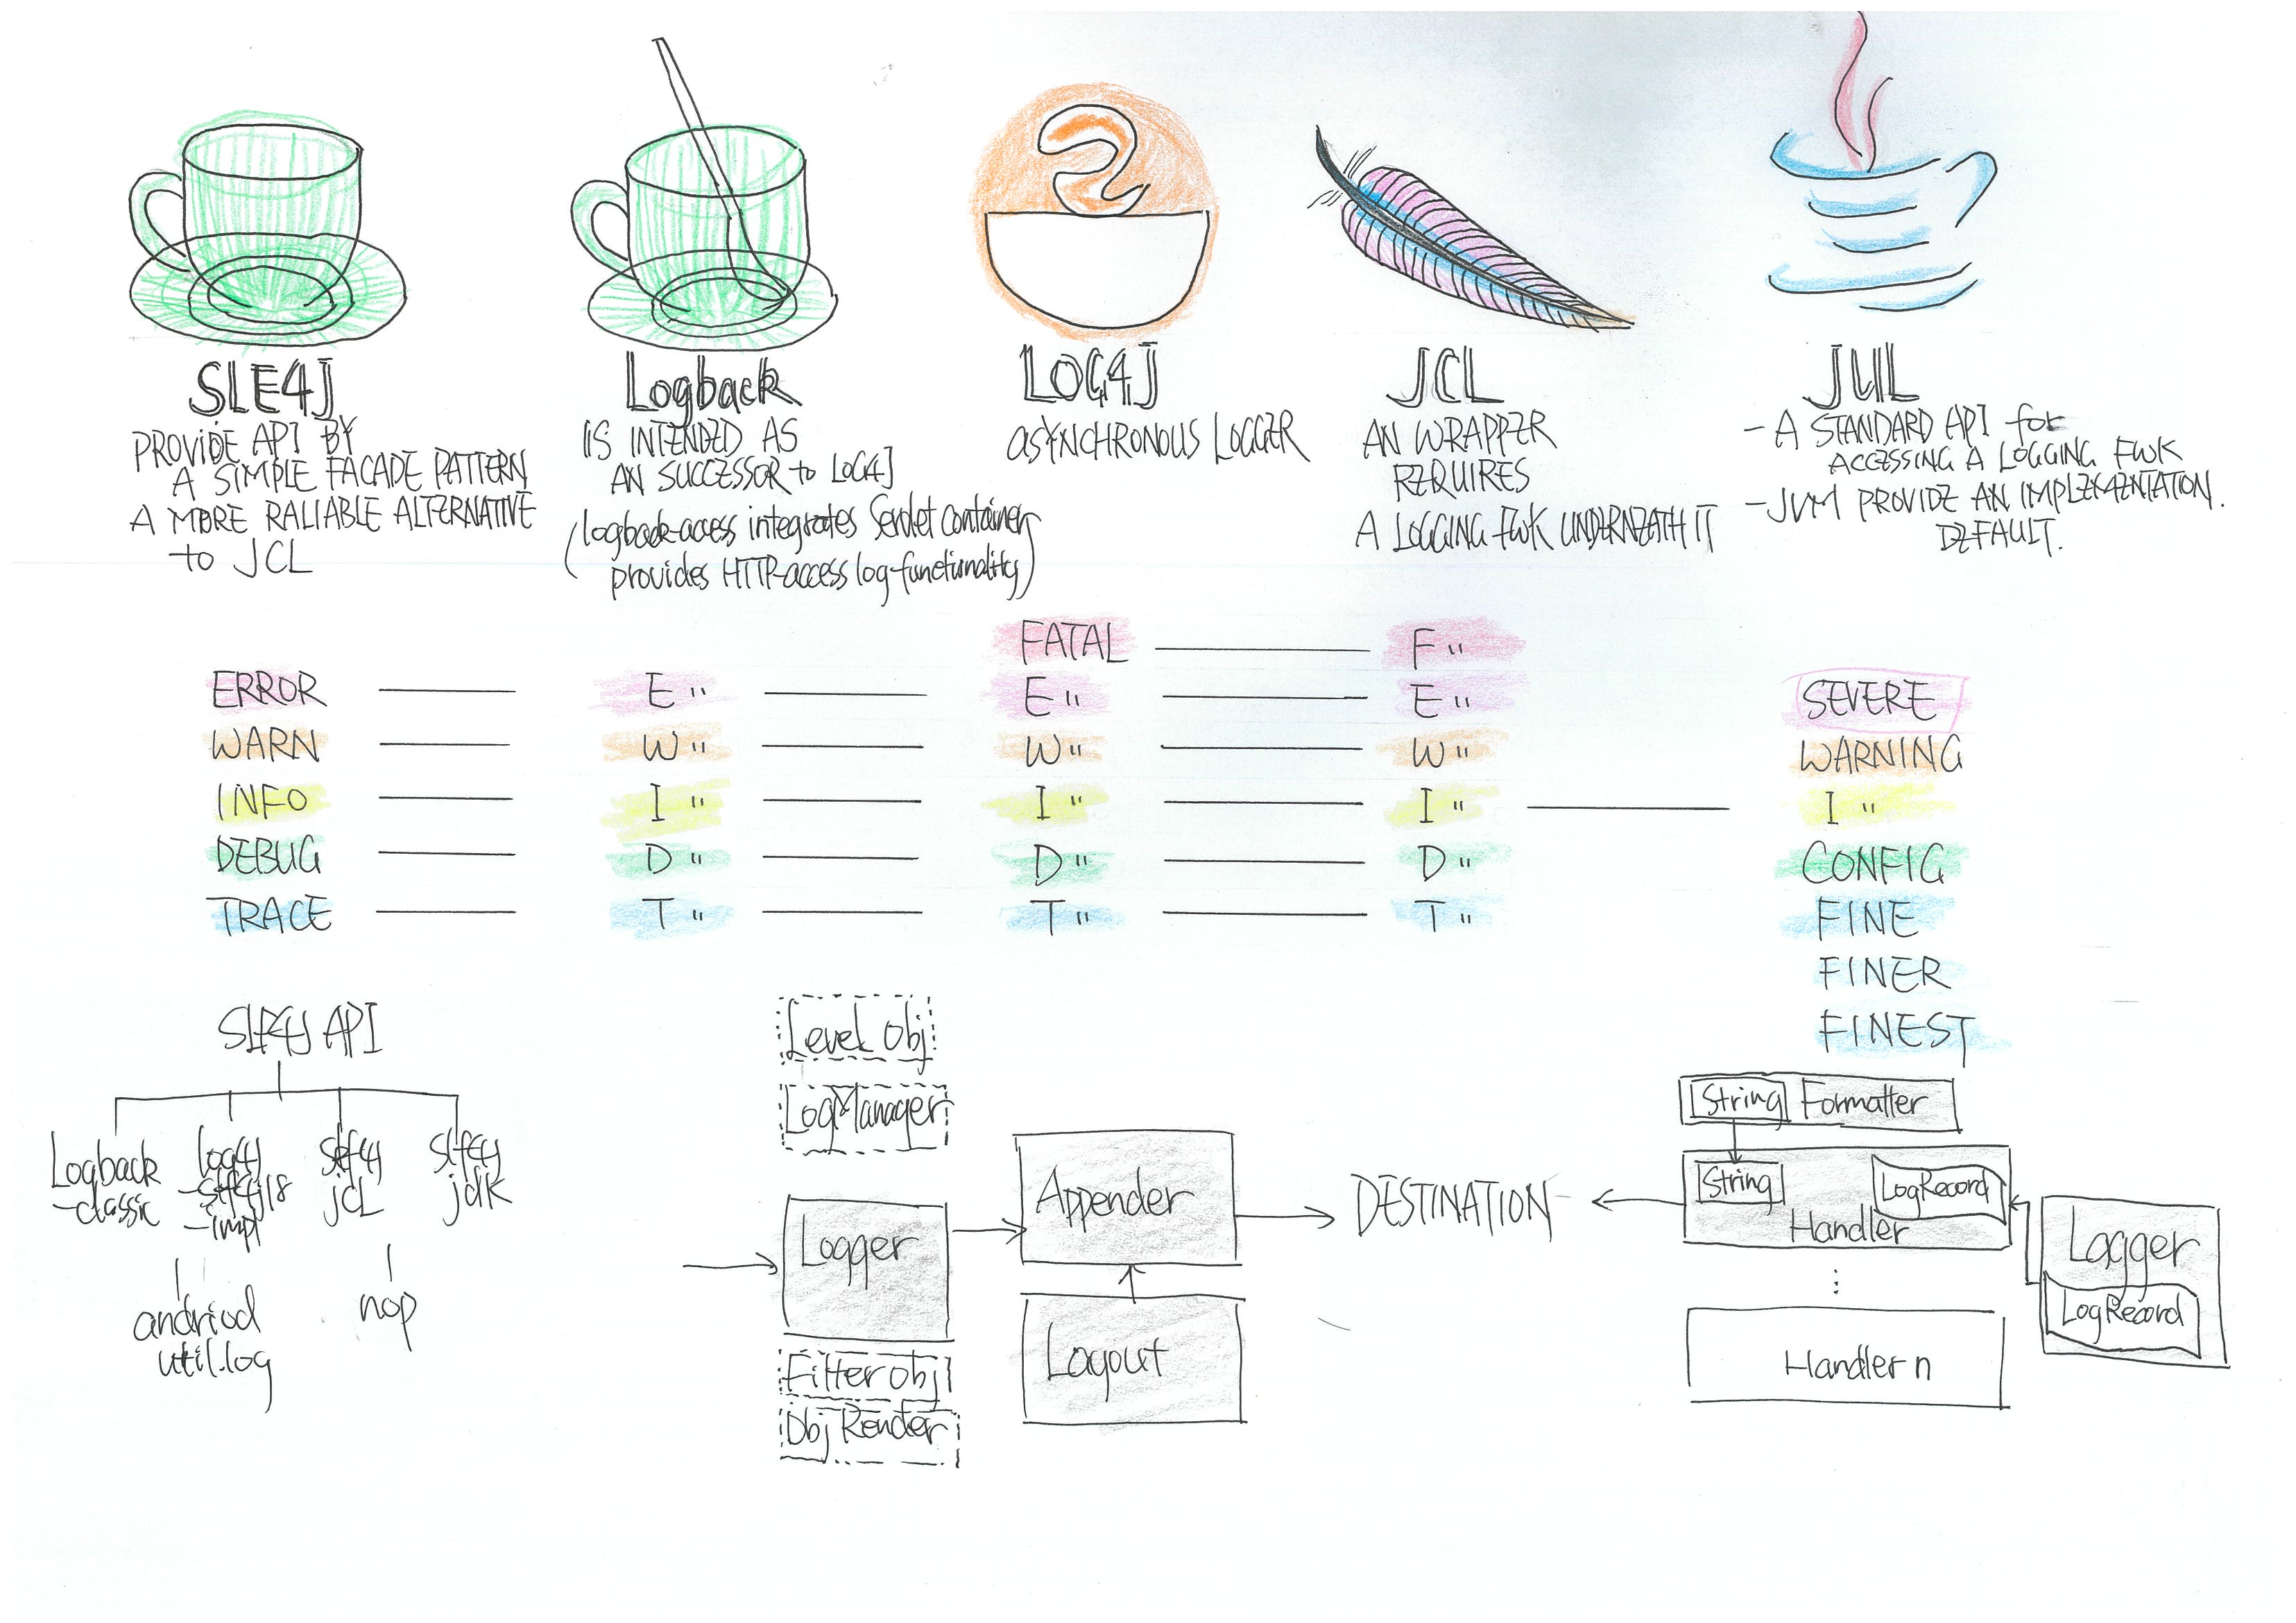 SLE4J
PROVIDE API BY
A SIMPLE FACADE PATTERN
A MORE RALIABLE ALTERNATIVE
to JCL
Logback
IS INTENDED AS
AN SUCCESSOR to LOG4J
(logback-access integrates Servlet container
provides HTTP-access log-functionality)
LOG4J
ASYNCHRONOUS LOGGER
JCL
AN WRAPPER
REQUIRES
A LOGGING FWK UNDERNEATH IT
JUL
- A STANDARD API for
ACCESSING A LOGGING FWK
- JVM PROVIDE AN IMPLEMENTATION.
DEFAULT.
FATAL F "
ERROR E " E " E " SEVERE
WARN W " W " W " WARNING
INFO I " I " I " I "
DEBUG D " D " D " CONFIG
TRACE T " T " T " FINE
FINER
FINEST
SLF4J API
Logback
-classic
log4j
-slf4j18
-impl
slf4j
jcl
slf4j
jdk
andriod
util.log
nop
Level Obj
LogManager
Logger
Filter obj
Obj Render
Appender
Layout
DESTINATION
String Formatter
String LogRecord
Handler
⋮
Handler n
Logger
LogRecord